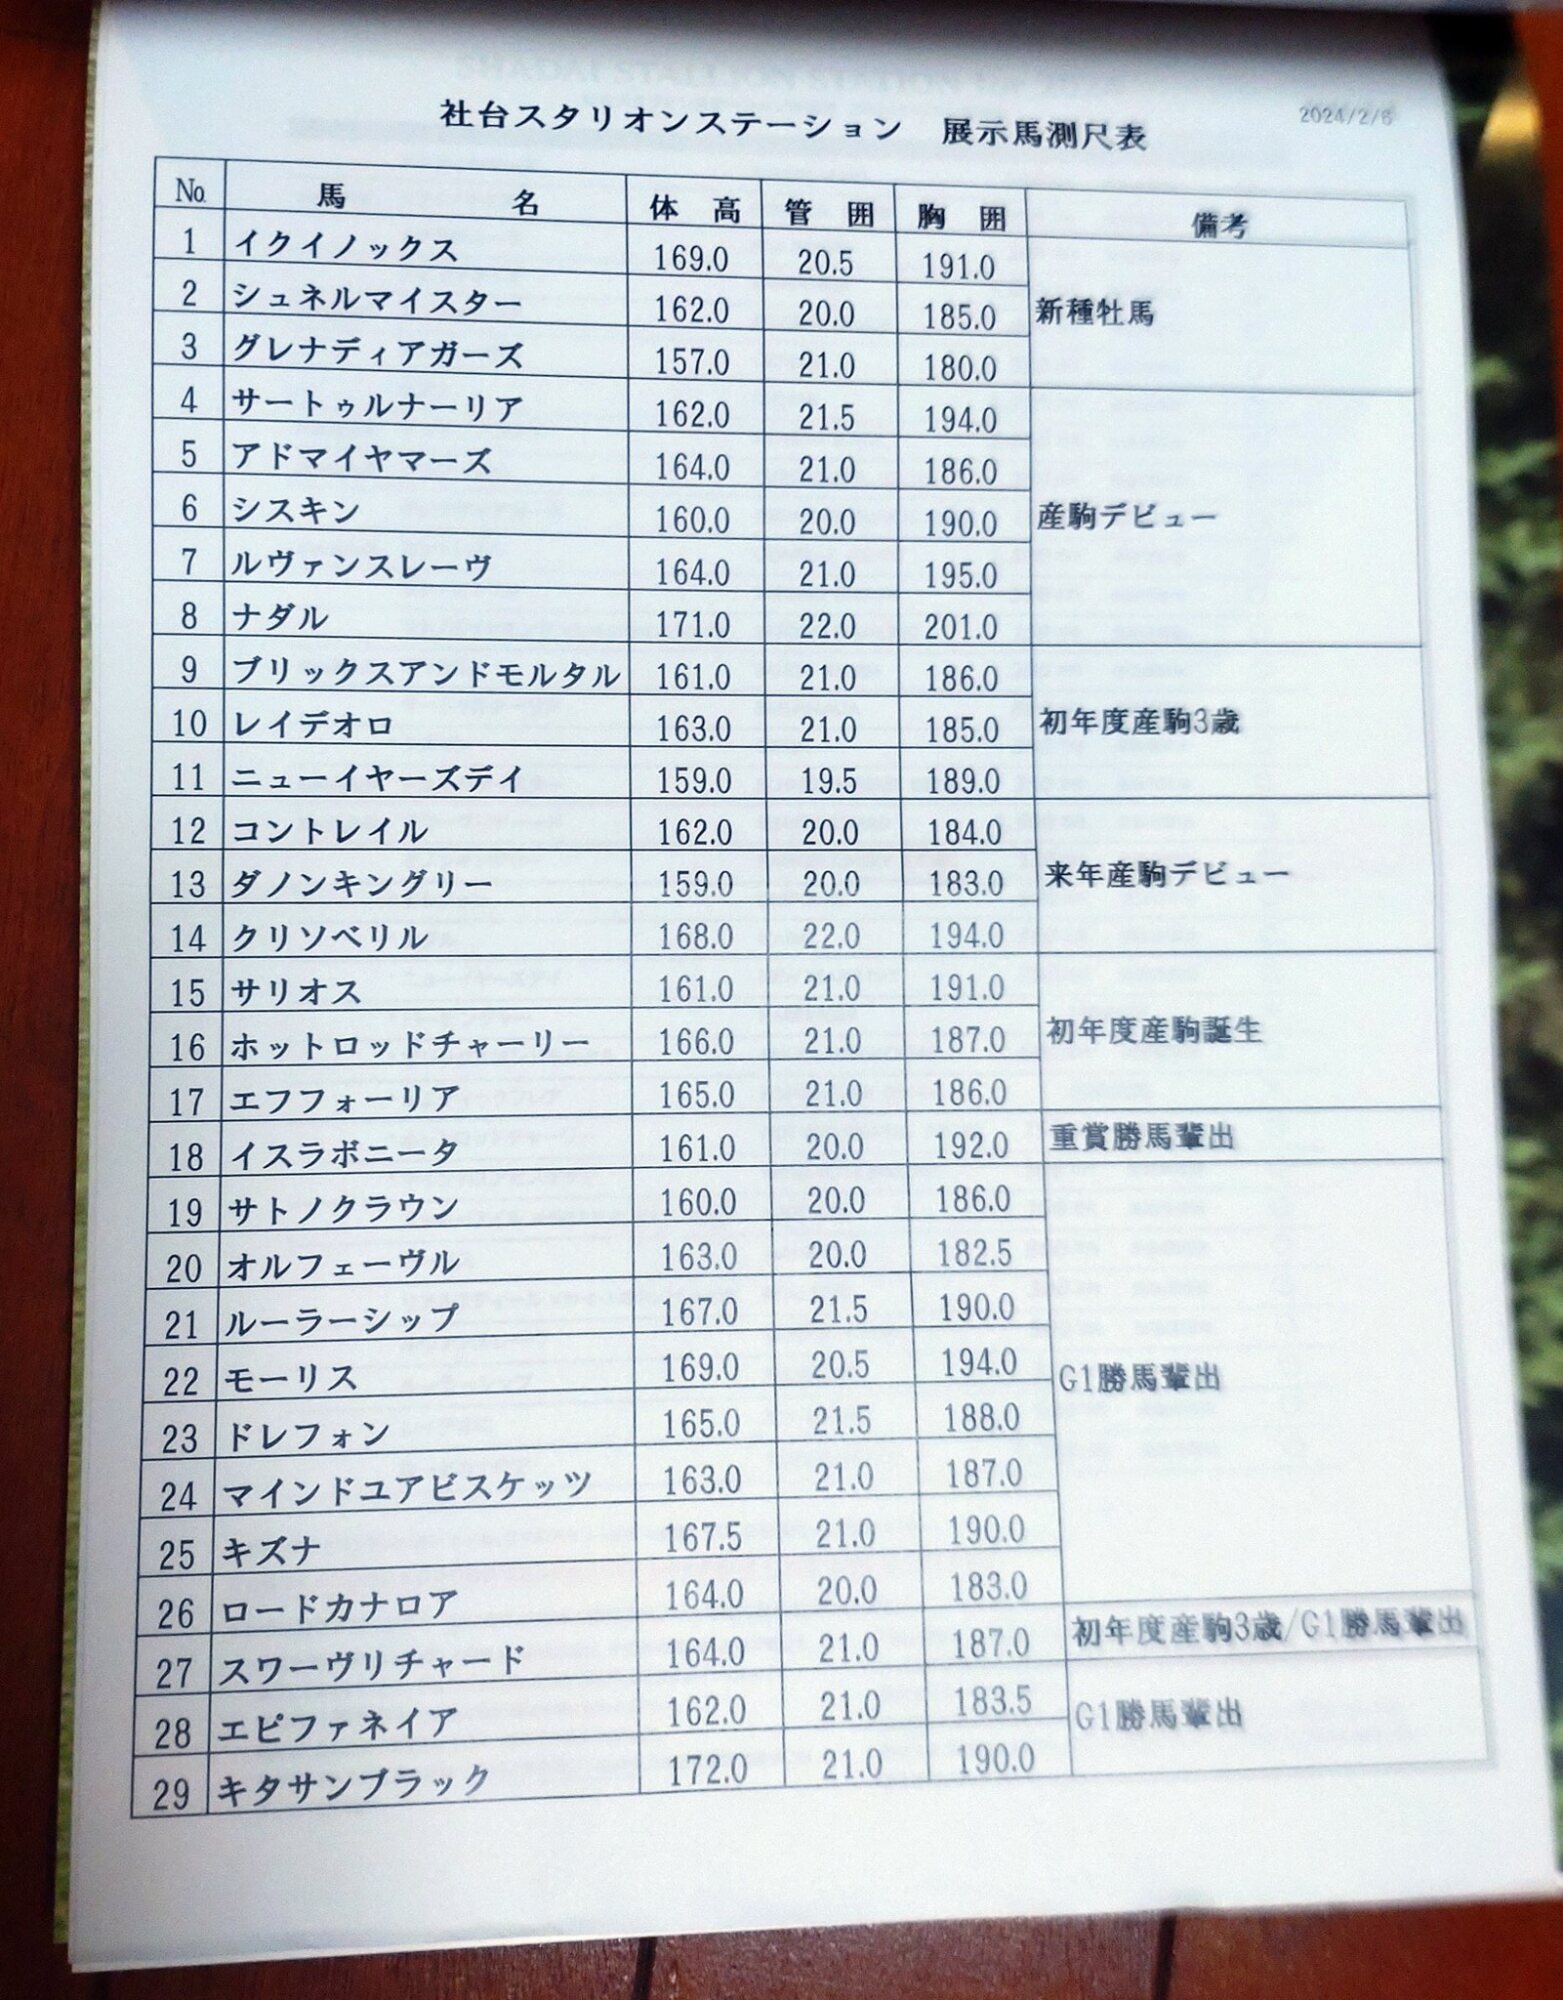 社台スタリオンステーション　展示馬測尺表
2024/2/6
No. 馬名 体高 管囲 胸囲 備考
1 イクイノックス 169.0 20.5 191.0
2 シュネルマイスター 162.0 20.0 185.0 新種牡馬
3 グレナディアガーズ 157.0 21.0 180.0
4 サートゥルナーリア 162.0 21.5 194.0
5 アドマイヤマーズ 164.0 21.0 186.0
6 シスキン 160.0 20.0 190.0 産駒デビュー
7 ルヴァンスレーヴ 164.0 21.0 195.0
8 ナダル 171.0 22.0 201.0
9 ブリックスアンドモルタル 161.0 21.0 186.0
10 レイデオロ 163.0 21.0 185.0 初年度産駒3歳
11 ニューイヤーズデイ 159.0 19.5 189.0
12 コントレイル 162.0 20.0 184.0
13 ダノンキングリー 159.0 20.0 183.0 来年産駒デビュー
14 クリソベリル 168.0 22.0 194.0
15 サリオス 161.0 21.0 191.0
16 ホットロッドチャーリー 166.0 21.0 187.0 初年度産駒誕生
17 エフフォーリア 165.0 21.0 186.0
18 イスラボニータ 161.0 20.0 192.0 重賞勝馬輩出
19 サトノクラウン 160.0 20.0 186.0
20 オルフェーヴル 163.0 20.0 182.5
21 ルーラーシップ 167.0 21.5 190.0
22 モーリス 169.0 20.5 194.0 G1勝馬輩出
23 ドレフォン 165.0 21.5 188.0
24 マインドユアビスケッツ 163.0 21.0 187.0
25 キズナ 167.5 21.0 190.0
26 ロードカナロア 164.0 20.0 183.0
27 スワーヴリチャード 164.0 21.0 187.0 初年度産駒3歳/G1勝馬輩出
28 エピファネイア 162.0 21.0 183.5 G1勝馬輩出
29 キタサンブラック 172.0 21.0 190.0